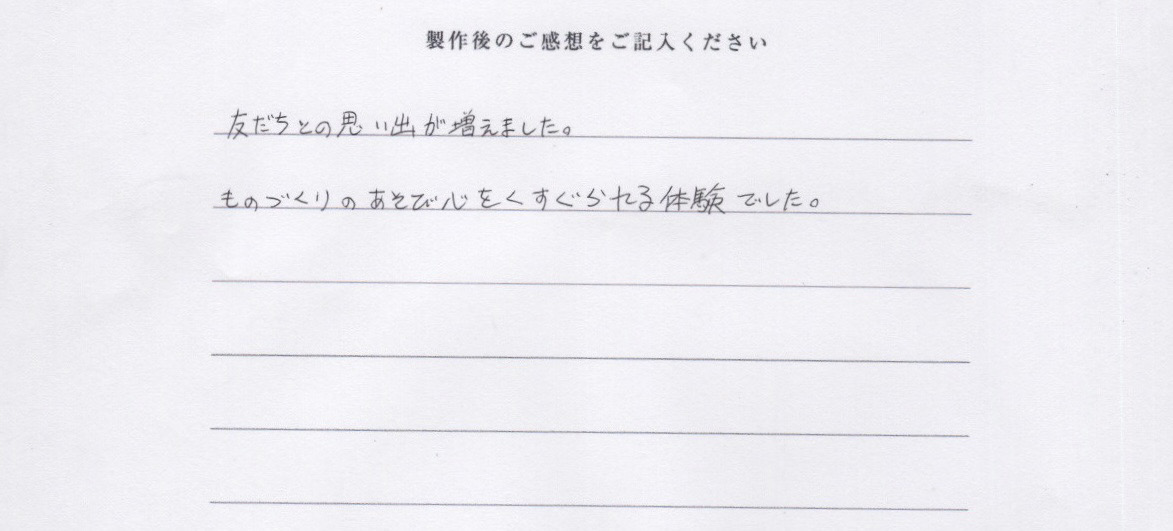 製作後のご感想をご記入ください
友だちとの思い出が増えました。
ものづくりのあそび心をくすぐられる体験でした。